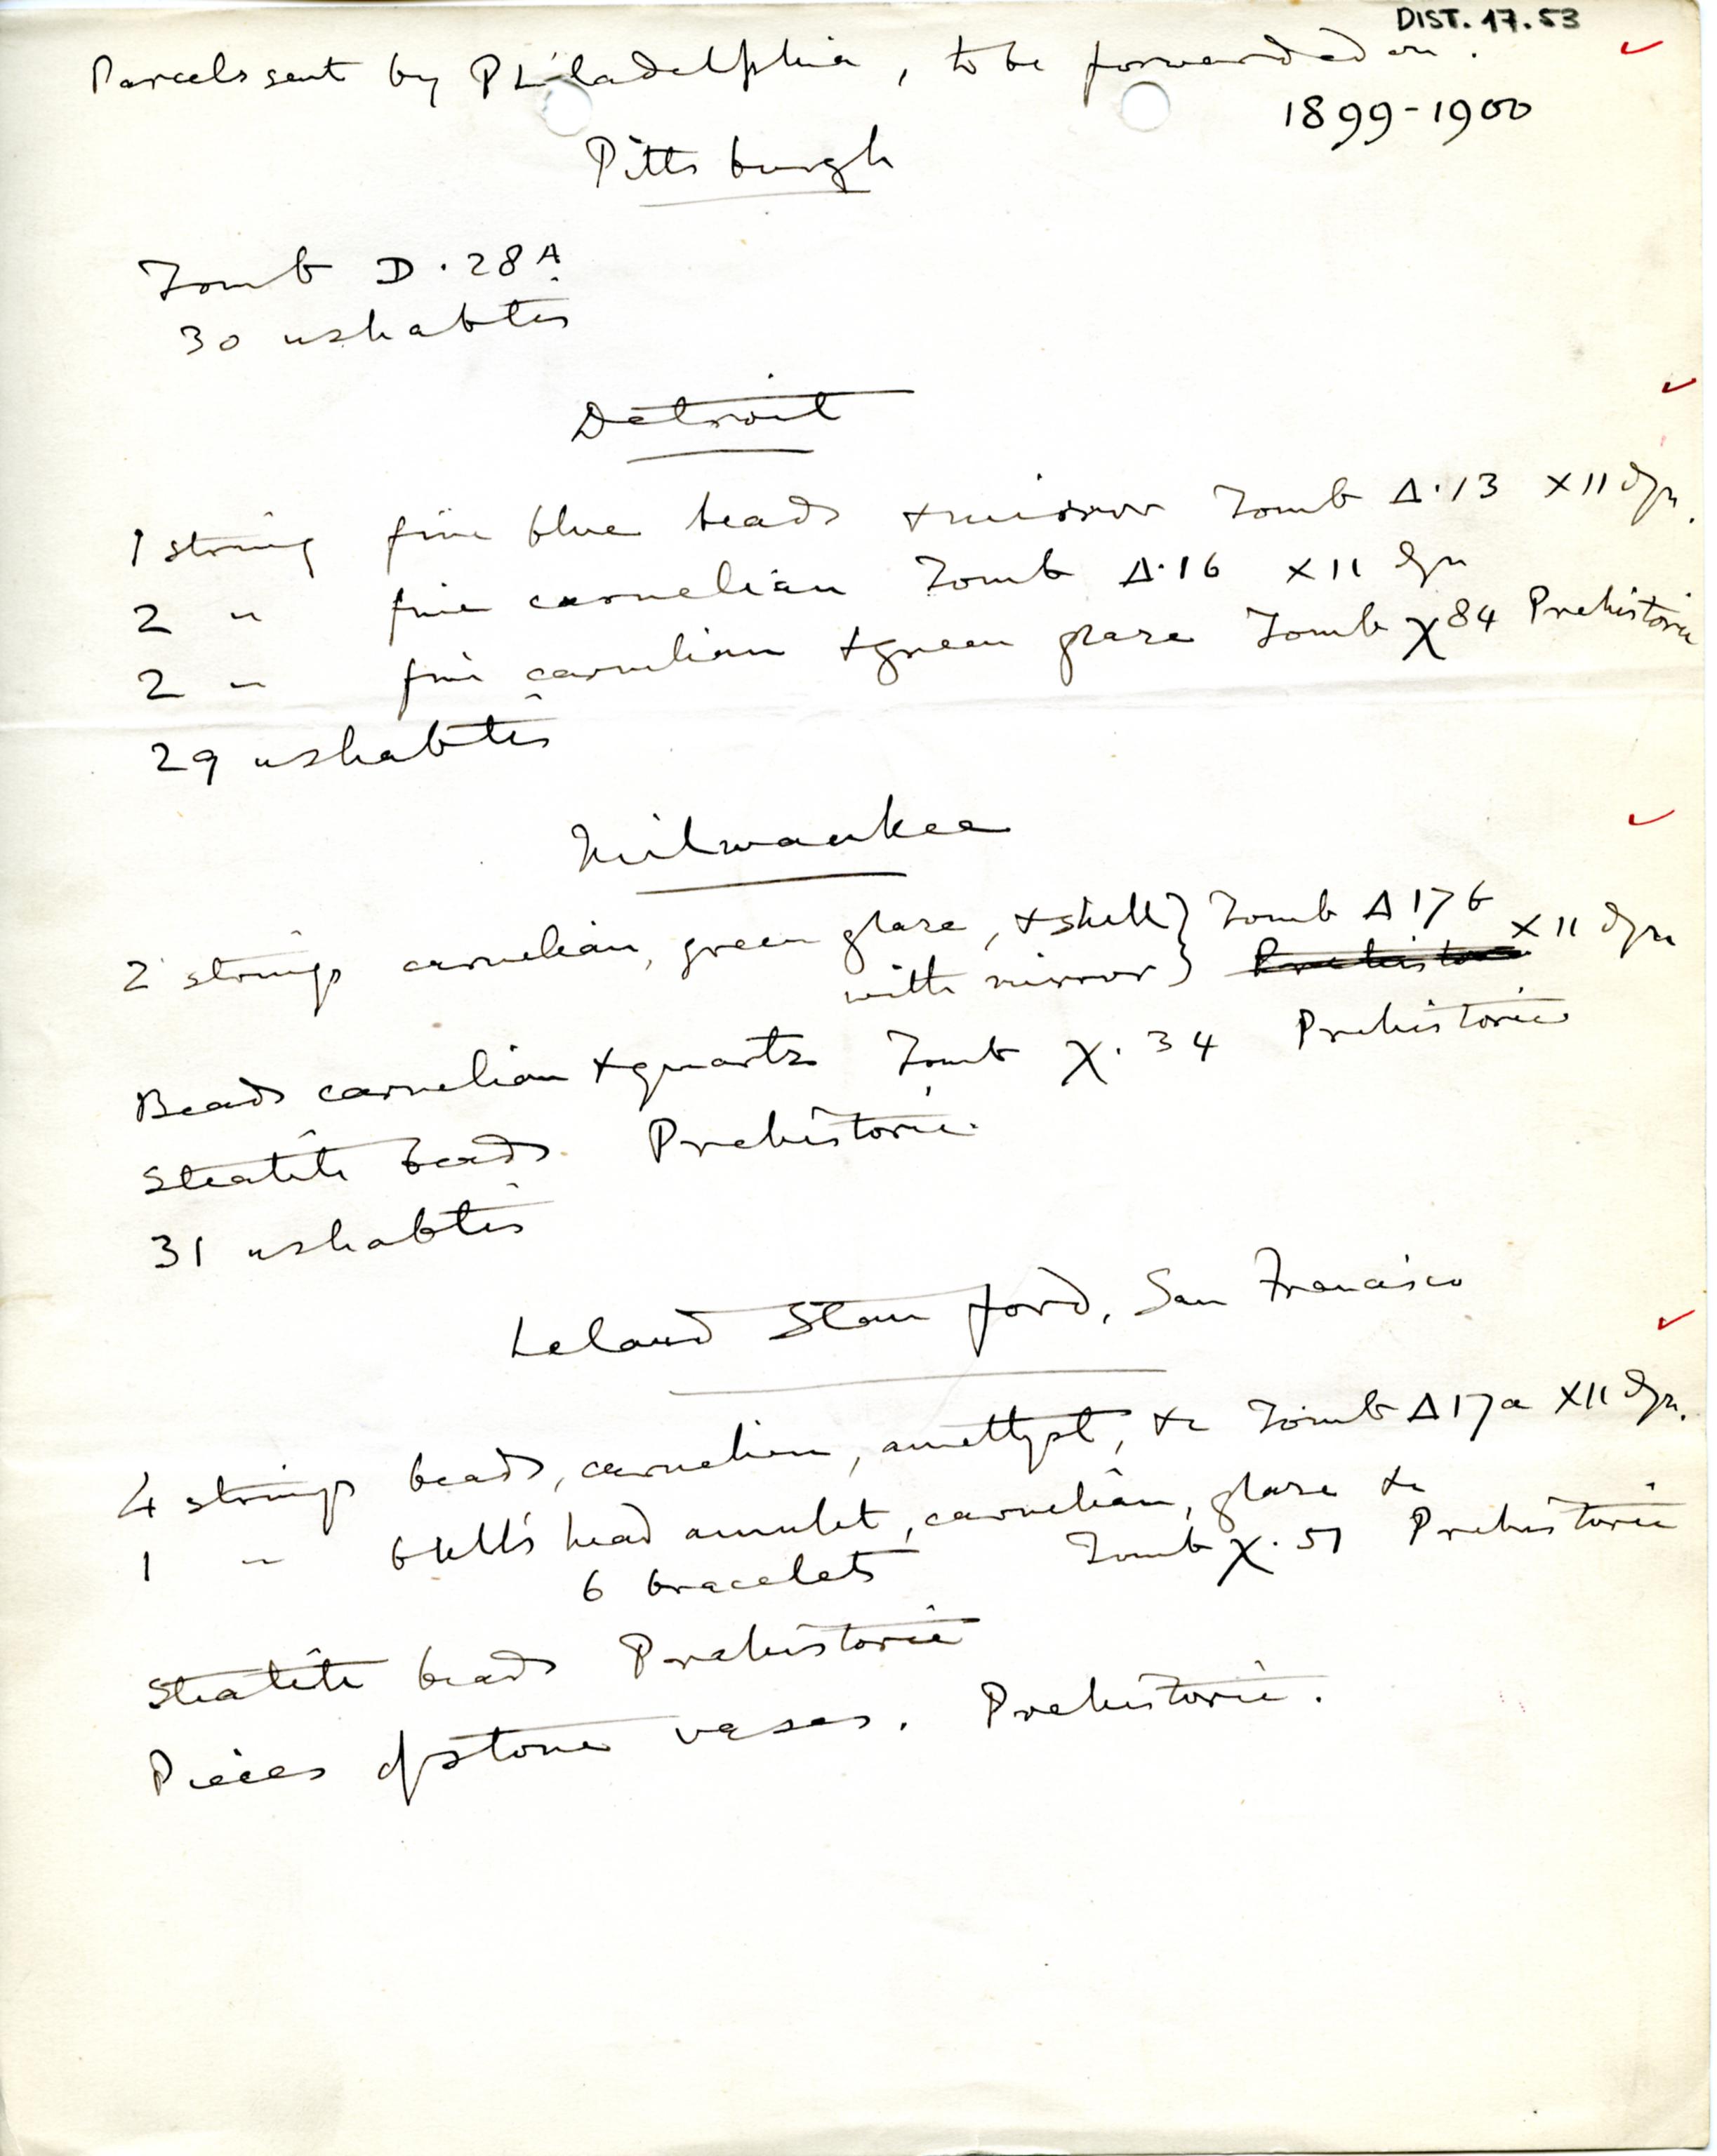 DIST. 17.53
Parcels sent by Philadelphia, to be forwarded on.
1899-1900
Pittsburgh
Tomb D.28A
30 ushabtis
Detroit
1 string fine blue beads + mirror Tomb Δ.13 XII Dyn.
2 " fine carnelian Tomb Δ.16 XII Dyn
2 " fine carnelian + green glaze Tomb χ 84 Prehistoric
29 ushabtis
Milwaukee
2 strings carnelian, green glaze, + shell } Tomb Δ 17b XII Dyn
with mirror } Prehistoric
Beads carnelian + quartz Tomb χ. 34 Prehistoric
Steatite beads Prehistoric.
31 ushabtis
Leland Stanford, San Francisco
4 strings beads, carnelian, amethyst, &c Tomb Δ 17a XII Dyn.
1 " bull's head amulet, carnelian, glaze &c
6 bracelets Tomb χ. 51 Prehistoric
Steatite beads Prehistoric
Pieces of stone vases. Prehistoric.